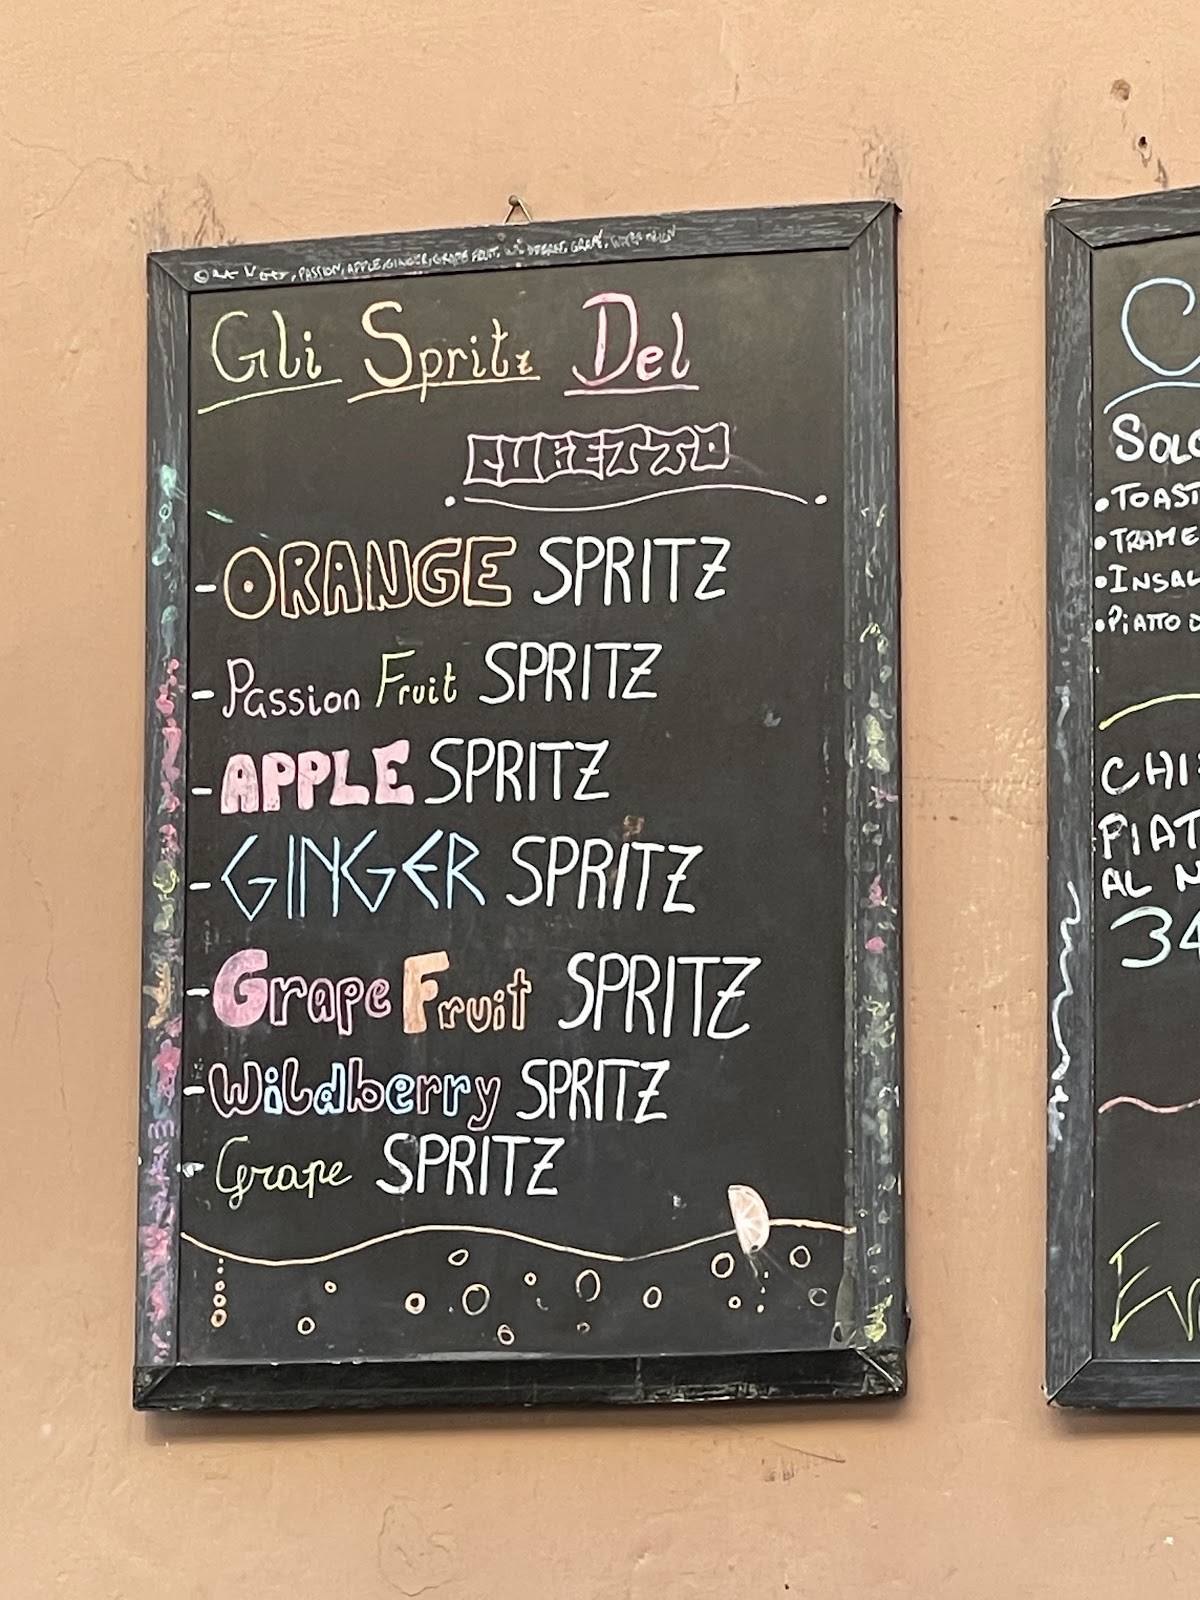 PASSION, APPLE, GINGER, GRAPE FRUIT,
Gli Spritz Del
CUBETTO
- ORANGE SPRITZ
- Passion Fruit SPRITZ
- APPLE SPRITZ
- GINGER SPRITZ
- Grape Fruit SPRITZ
- Wildberry SPRITZ
- Grape SPRITZ
C
SOLO
• TOAST
• TRAME
• INSAL
• PIATTO D
CHI
PIAT
AL
34